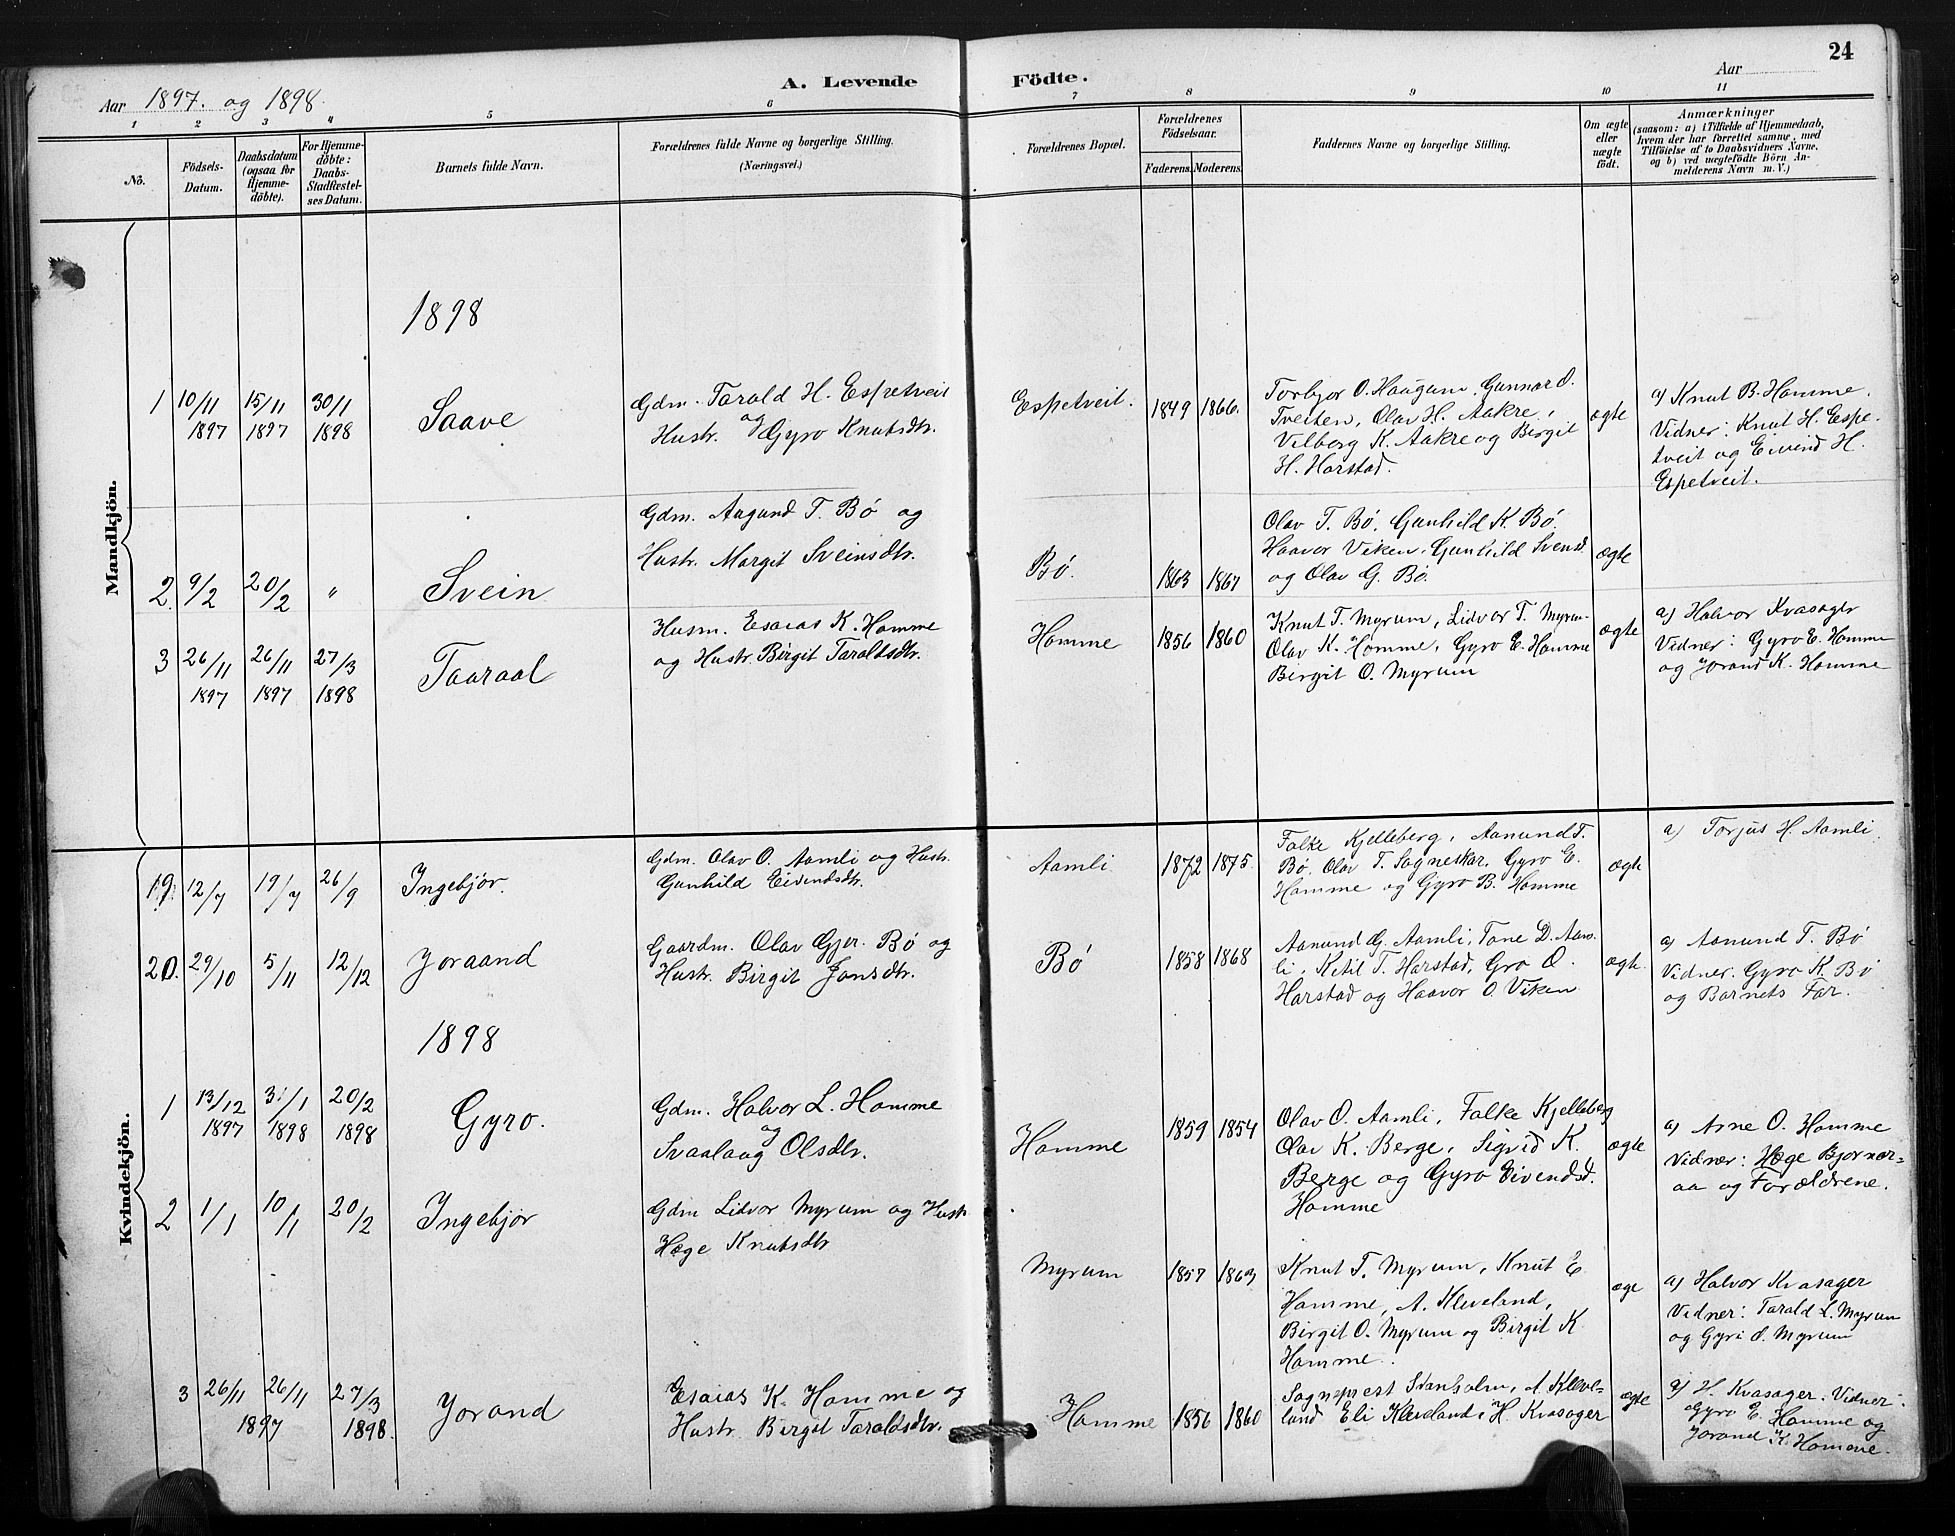 24
A. Levende Födte.
Aar 1897. og 1898.
Aar
1 2 3 4 5 6 7 8 9 10 11
No.
Födsels-
Datum.
Daabsdatum
(ogsaa for
Hjemme-
döbte).
For Hjemme-
döbte:
Daabs-
Stadfæstel-
ses Datum.
Barnets fulde Navn.
Forældrenes fulde Navne og borgerlige Stilling.
(Næringsvei.)
Forældrenes Bopæl.
Forældrenes
Födselsaar.
Faderens. Moderens.
Faddernes Navne og borgerlige Stilling.
Om ægte
eller
uægte
födt.
Anmærkninger
(saasom: a) i Tilfælde af Hjemmedaab,
hvem der har forrettet samme, med
Tilföielse af to Daabsvidners Navne.
og b) ved uægtefödte Börn An-
melderens Navn m. V.)
Mandkjön.
1898
1 10/11 1897 15/11 1897 30/1 1898
Saave
Gdm. Tarald H. Espetveit
og
Hustr. Gyro Knutsdtr.
Espetveit.
1849 1866.
Torbjor O. Haugum, Gunnar O.
Tveiten, Olav H. Aakre,
Vilborg K. Aakre og Birgit
H. Harstad.
ægte
a) Knut B. Homme.
Vidner: Knut H. Espe-
tveit og Eivind H.
Espetveit.
2. 9/2 20/2 "
Svein
Gdm. Aagund T. Bó og
Hustr. Margit Sveinsdtr.
Bó.
1863 1867
Olav T. Bó. Gunhild K. Bó.
Haavor Viken, Gunhild Svensd.
og Olav G. Bó.
ægte
3 26/11 1897 26/11 1897 27/3 1898
Taaraal
Husm. Esaias K. Homme
og Hustr. Birgit Taraldsdtr.
Homme
1856 1860
Knut T. Myrum, Lidvor T. Myrum
Olav K. Homme, Gyro E. Homme
Birgit O. Myrum
ægte
a) Halvor Kvasager
Vidner: Gyro E. Homme
og Jorand K. Homme
Kvindekjön.
19. 12/7 19/7 26/9
Ingebjør.
Gdm. Olav O. Aamli og Hustr.
Gunhild Eivendsdtr.
Aamli
1872 1875.
Falke Kjelleberg, Aanund T.
Bó, Olav T. Sagneskar, Gyro E.
Homme og Gyro B. Homme
ægte
a) Torjus H. Aamli.
20. 29/10 5/11 12/12
Joraand
Gaardm. Olav Gjer. Bó og
Hustr. Birgit Jonsdtr.
Bó
1858 1868
Aanund G. Aamli, Tone D. Aam-
li, Ketil T. Harstad, Gro O.
Harstad og Haavor O. Viken
ægte.
a) Aanund T. Bó
Vidner: Gyro K. Bó
og Barnets Far.
1898
1 13/12 1897 31/1 1898 20/2 1898
Gyro.
Gdm. Halvor L. Homme
og
Svaalaug Olsdtr.
Homme
1859 1854
Olav O. Aamli, Falke Kjelleberg
Olav K. Berge, Sigrid K.
Berge og Gyro Eivendsd.
Homme
ægte
a) Arne O. Homme
Vidner: Hæge Bjornar-
aa og Forældrene.
2 1/1 10/1 20/2
Ingebjør
Gdm Lidvor Myrum og Hustr
Hæge Knutsdtr
Myrum
1857 1863
Knut T. Myrum, Knut E.
Homme, A. Kleveland,
Birgit O. Myrum og Birgit K.
Homme.
ægte
a) Halvor Kvasager
Vidner: Tarald L. Myrum
og Gyri S. Myrum
3 26/11 26/11 1897 27/3 1898.
Jorand
Esaias K. Homme og
Hustr. Birgit Taraldsdtr.
Homme
1856 1860
Sogneprest Stenholm, A. Kleve-
land Eli Kleveland, H. Kvasager
ægte
a) H. Kvasager. Vidner:
Gyro E. Homme og
Jorand K. Homme.